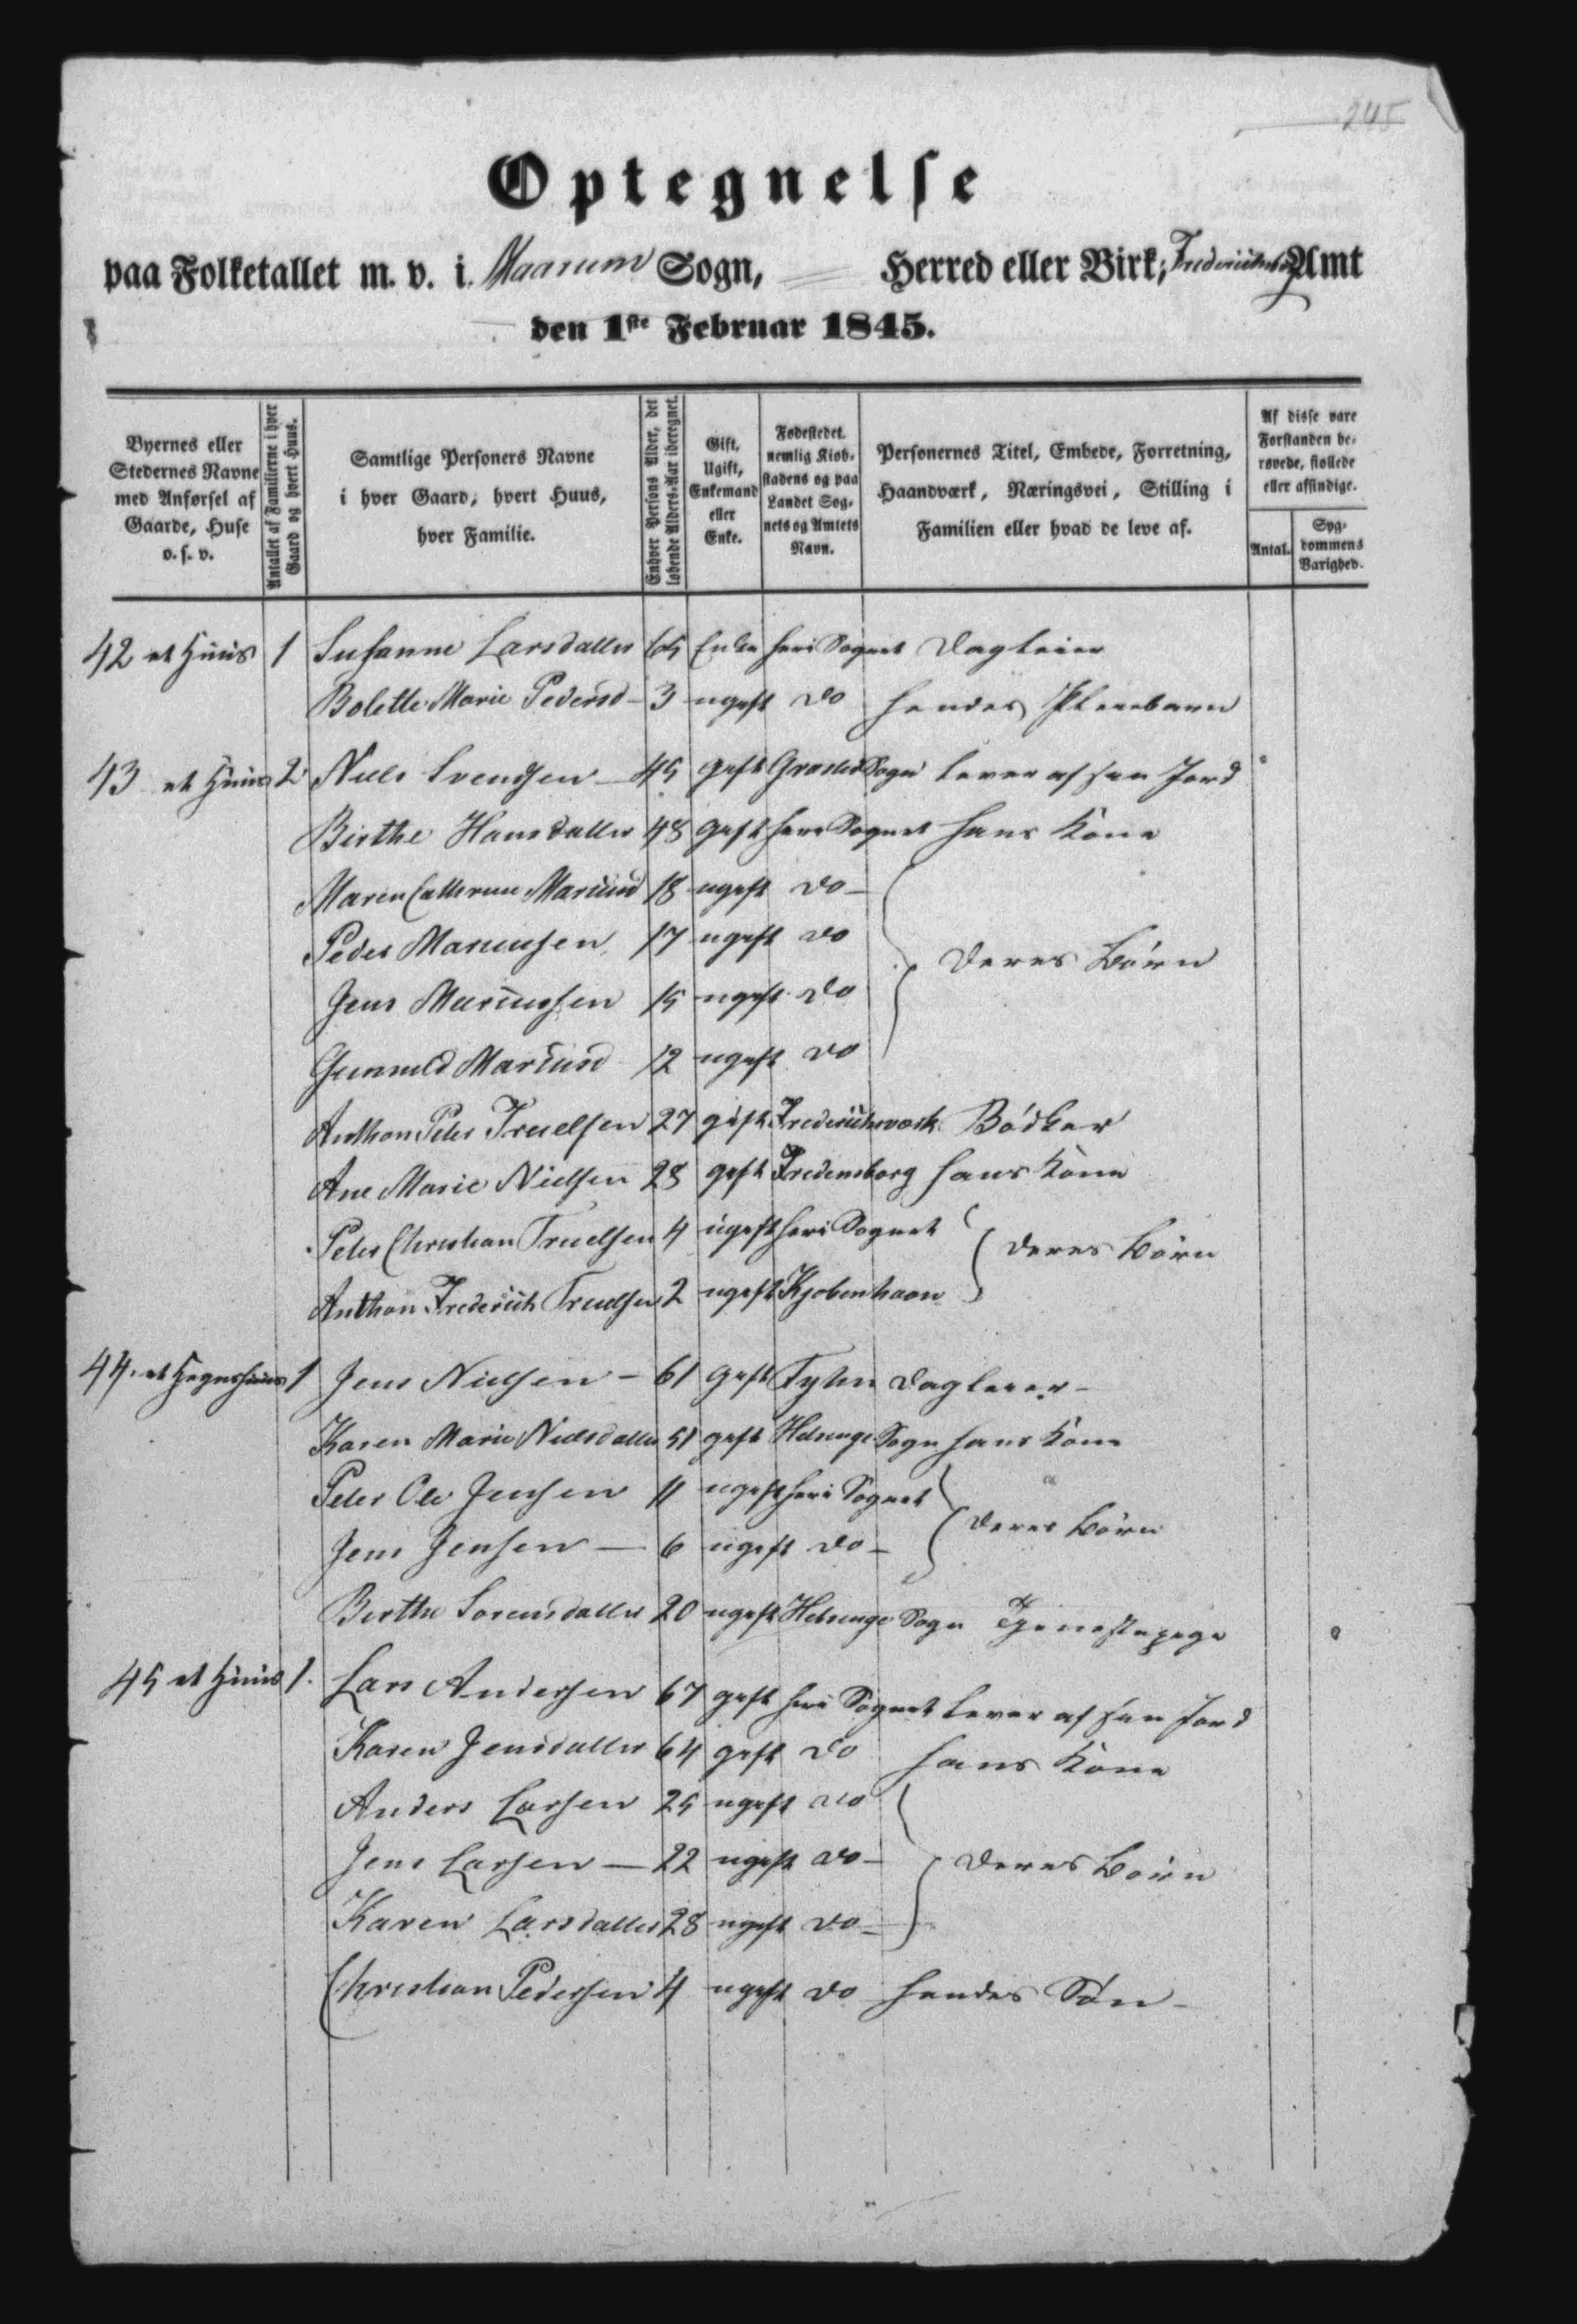 245
Optegnelse
paa Folketallet m. v. i Maarum Sogn, Herred eller Birk, Frederichsborg Amt
den 1ste Februar 1845.
Byernes eller Stedernes Navne med Anførsel af Gaarde, Huse o. s. v.
Antallet af Familierne i hver Gaard og hvert Huus.
Samtlige Personers Navne i hver Gaard, hvert Huus, hver Familie.
Enhver Persons Alder, det løbende Alders-Aar iberegnet.
Gift, Ugift, Enkemand eller Enke.
Fødestedet, nemlig Kiøbstadens og paa Landet Sognets og Amtets Navn.
Personernes Titel, Embede, Forretning, Haandværk, Næringsvei, Stilling i Familien eller hvad de leve af.
Af disse vare Forstanden berøvede, fiollede eller afsindige.
Antal.
Sygdommens Varighed.
42 et Huus 1 Susanne Larsdatter 65 Enke her i Sognet Dagleier
Bolette Marie Pedersd - 3 ugift do hendes Pleiebarn
43 et Huus 2 Niels Svendsen - 45 gift Græsted Sogn lever af sin Jord
Birthe Hansdatter 48 gift her i Sognet hans Kone
Maren Cathrine 18 ugift do -
Peder 17 ugift do
deres Børn
Jens 15 ugift do
Gunnild 12 ugift do
Anthon Peter Truelsen 27 gift Frederichsværk Bødker
Ane Marie Nielsen 28 gift Fredensborg hans Kone
Peter Christian Truelsen 4 ugift her i Sognet
deres Børn
Anthon Frederich Truelsen 2 ugift Kjøbenhavn
44. et 1 Jens Nielsen - 61 gift Dagleier -
Karen Marie Nielsdatter 51 gift Helsinge Sogn hans Kone
Peter Ole Jensen 11 ugift her i Sognet
deres Børn
Jens Jensen - 6 ugift do -
Birthe Sørensdatter 20 ugift Helsinge Sogn Tjenestepige
45 et Huus 1. Lars Andersen 67 gift her i Sognet lever af sin Jord
Karen Jensdatter 64 gift do hans Kone
Anders Larsen 25 ugift do
Jens Larsen - 22 ugift do - deres Børn
Karen Larsdatter 28 ugift do -
Christian Pedersen 4 ugift do hendes Søn -